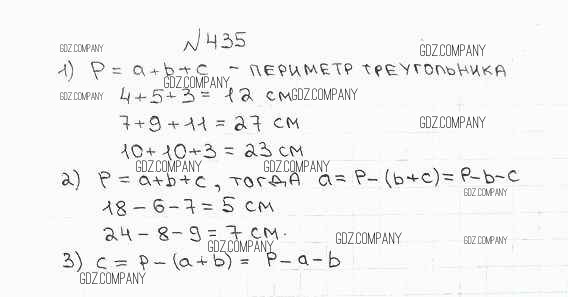 №435
GDZ.COMPANY GDZ.COMPANY
1) P = a+b+c - ПЕРИМЕТР ТРЕУГОЛЬНИКА
GDZ.COMPANY
GDZ.COMPANY 4+5+3 = 12 см GDZ.COMPANY
7+9+11 = 27 см GDZ.COMPANY
10+10+3 = 23 см
GDZ.COMPANY GDZ.COMPANY
2) P = a+b+c, ТОГДА a = P-(b+c) = P-b-c
GDZ.COMPANY
18-6-7 = 5 см
24-8-9 = 7 см.
GDZ.COMPANY GDZ.COMPANY GDZ.COMPANY
3) c = P-(a+b) = P-a-b
GDZ.COMPANY